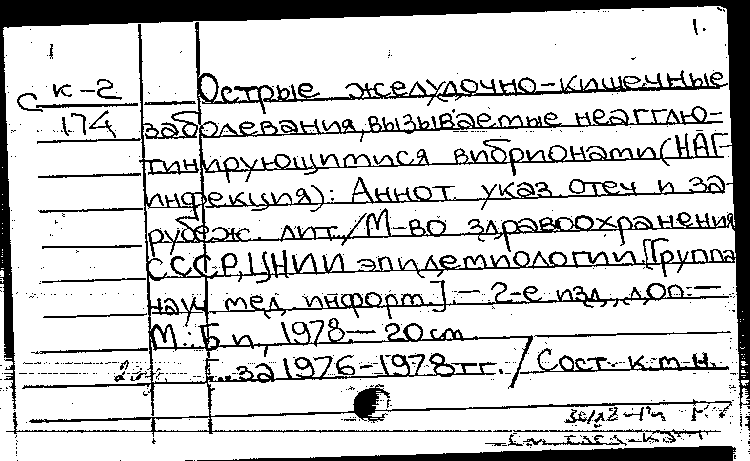 1 1.
С К-2
174
Острые желудочно-кишечные
заболевания, вызываемые неагглю-
тинирующимися вибрионами (НАГ-
инфекция): Аннот. указ. отеч и за-
рубеж. лит./М-во здравоохранения
СССР, ЦНИИ эпидемиологии [Группа
науч. мед. информ.]. — 2-е изд., доп. —
М.: Б.и., 1978. — 20 см.
... за 1976-1978 гг. / Сост. к.м.н.
См. след. к-у